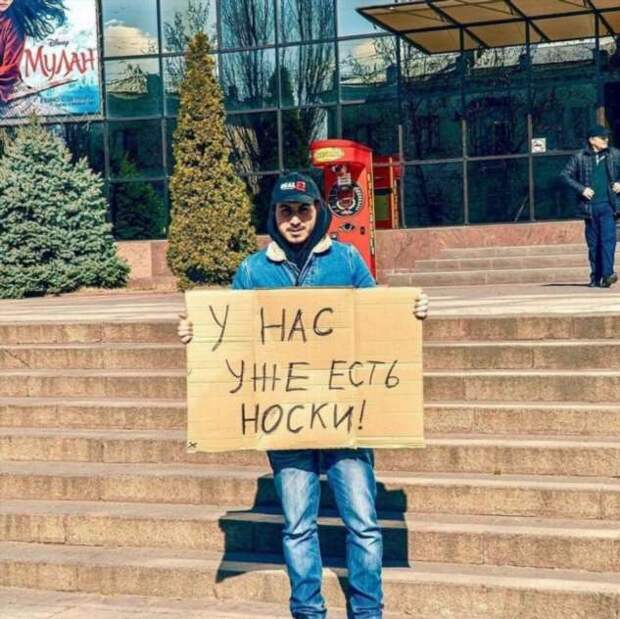 Disney
МУЛАН
REAL
У НАС
УЖЕ ЕСТЬ
НОСКИ!